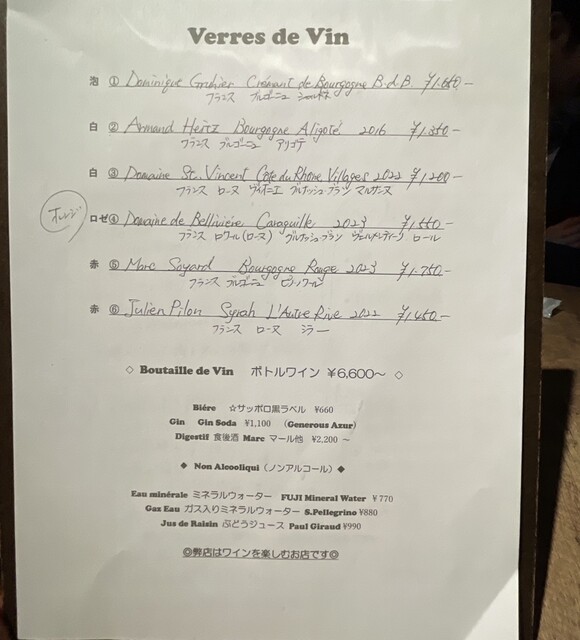 Verres de Vin
泡 ① Dominique Gruhier Crémant de Bourgogne B.d.B. ¥1.650-
フランス ブルゴーニュ
白 ② Armand Heitz Bourgogne Aligoté 2016 ¥1.350-
フランス ブルゴーニュ アリゴテ
白 ③ Domaine St. Vincent Côte du Rhône Villages 2022 ¥1200-
フランス ローヌ ヴィオニエ グルナッシュ・ブラン マルサンヌ
オレンジ
ロゼ④ Domaine de Bellivière Caroguille 2023 ¥1.550-
フランス ロワール(ローヌ) グルナッシュブラン ヴェルメンティーノ ロール
赤 ⑤ Marc Soyard Bourgogne Rouge 2023 ¥1.750-
フランス ブルゴーニュ ピノノワール
赤 ⑥ Julien Pilon Syrah L'Autre Rive 2022 ¥1.450-
フランス ローヌ シラー
◇ Boutaille de Vin ボトルワイン ¥6,600～ ◇
Biére ☆サッポロ黒ラベル ¥660
Gin Gin Soda ¥1,100 (Generous Azur)
Digestif 食後酒 Marc マール他 ¥2,200 ～
◆ Non Alcooliqui (ノンアルコール) ◆
Eau minérale ミネラルウォーター FUJI Mineral Water ¥770
Gaz Eau ガス入りミネラルウォーター S.Pellegrino ¥880
Jus de Raisin ぶどうジュース Paul Giraud ¥990
◎弊店はワインを楽しむお店です◎